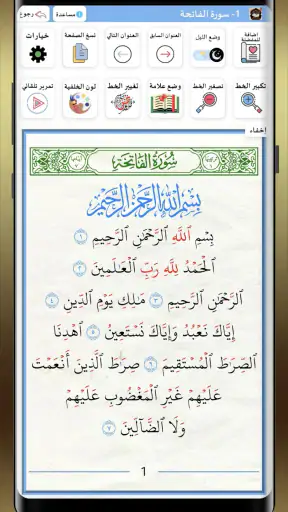 1- سورة الفاتحة
مساعدة
رجوع
اضافة للمفضلة
وضع الليل
العنوان السابق
العنوان التالي
نسخ الصفحة
خيارات
تكبير الخط
تصغير الخط
وضع علامة
تغيير الخط
لون الخلفية
تمرير تلقائي
إخفاء
سُورَةُ الفَاتِحَةِ
بِسْمِ اللَّهِ الرَّحْمَٰنِ الرَّحِيمِ
بِسۡمِ ٱللَّهِ ٱلرَّحۡمَٰنِ ٱلرَّحِيمِ ١
ٱلۡحَمۡدُ لِلَّهِ رَبِّ ٱلۡعَٰلَمِينَ ٢
ٱلرَّحۡمَٰنِ ٱلرَّحِيمِ ٣ مَٰلِكِ يَوۡمِ ٱلدِّينِ ٤
إِيَّاكَ نَعۡبُدُ وَإِيَّاكَ نَسۡتَعِينُ ٥ ٱهۡدِنَا
ٱلصِّرَٰطَ ٱلۡمُسۡتَقِيمَ ٦ صِرَٰطَ ٱلَّذِينَ أَنۡعَمۡتَ
عَلَيۡهِمۡ غَيۡرِ ٱلۡمَغۡضُوبِ عَلَيۡهِمۡ
وَلَا ٱلضَّآلِّينَ ٧
1